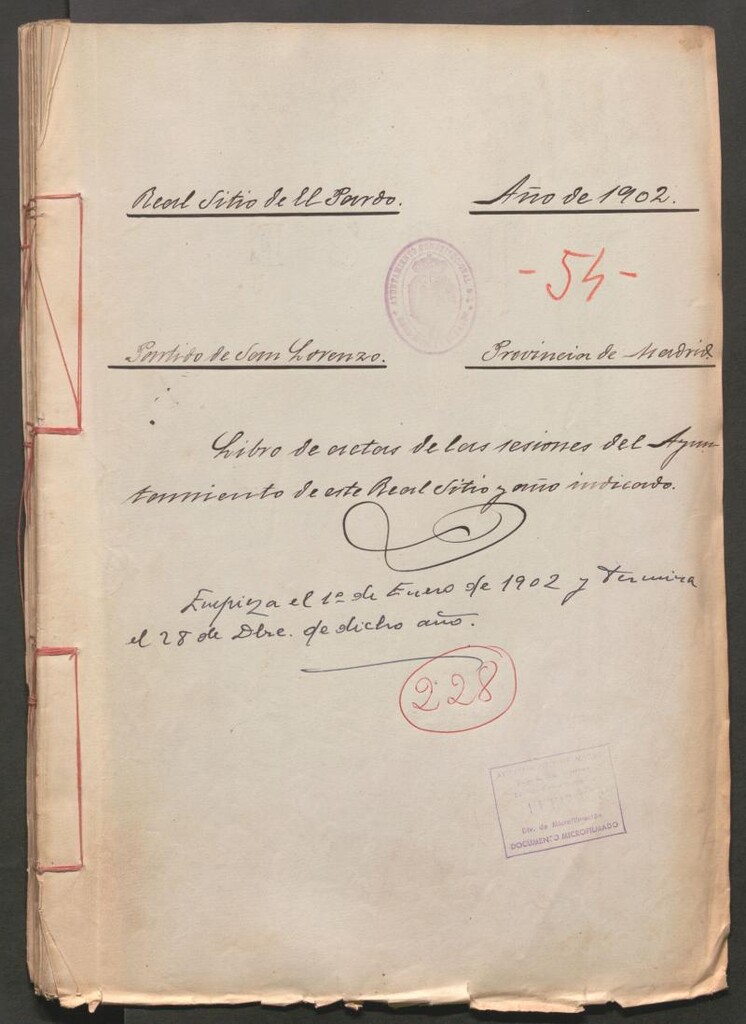 Real Sitio de El Pardo. Año de 1902.
AYUNTAMIENTO CONSTITUCIONAL
-54-
Partido de San Lorenzo. Provincia de Madrid
Libro de actas de las sesiones del Ayun-
tamiento de este Real Sitio y año indicado.
Empieza el 1º de Enero de 1902 y termina
el 28 de Dbre. de dicho año.
228
Div. de Microfilmación
DOCUMENTO MICROFILMADO